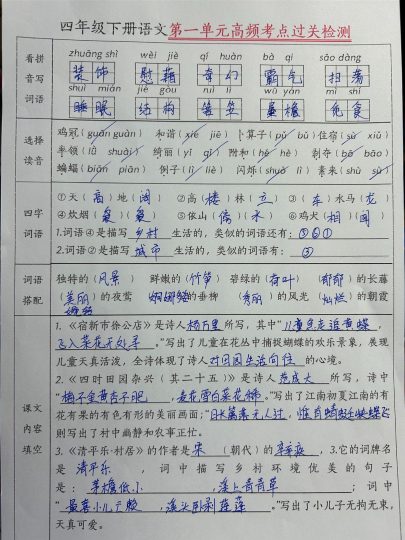 四年级下册语文第一单元高频考点过关检测
看拼音写词语
zhuāng shì wèi jiè qí huàn bà qì sǎo dàng
装饰 慰藉 奇幻 霸气 扫荡
shuì mián jié gòu wū yán mì shí
睡眠 结构 屋檐 觅食
选择读音
鸡冠(guān guàn) 和谐(xié jiē) 卜算子(pǔ bǔ) 住宿(sù xiǔ)
率领(lǜ shuài) 绮丽(yǐ qǐ) 附和(hè hé) 剥夺(bō bāo)
蝙蝠(biān piān) 例子(lì liè) 闪烁(shuò lì) 素来(shù sù)
四字词语
①天(高)地(阔) ②高(楼)林(立) ③(车)水马(龙)
④炊烟(袅)(袅) ⑤依山(傍)(水) ⑥鸡犬(相)(闻)
1.词语④是描写 乡村 生活的,类似的词语还有:⑤⑥①
2.词语②是描写 城市 生活的,类似的词语有:③
词语搭配
独特的(风景) 鲜嫩的(竹笋) 碧绿的(荷叶) (郁郁)的长藤
(美丽)的夜莺 的垂柳 (秀丽)的风光 (灿烂)的朝霞
课文内容填空
1.《宿新市徐公店》是诗人杨万里所写,其中“儿童急走追黄蝶,
飞入菜花无处寻。”写出了儿童在花丛中捕捉蝴蝶的欢乐景象,展现
儿童天真活泼,全诗体现了诗人对田园生活向往的心境。
2.《四时田园杂兴(其二十五)》是诗人范成大所写,诗中
“梅子金黄杏子肥,麦花雪白菜花稀。”写出了江南初夏江南的有
花有果的有色有形的美丽画面;“日长篱落无人过,惟有蜻蜓蛱蝶飞”
则写出了村中幽静和农事正忙。
3.《清平乐·村居》的作者是宋(朝代)的辛弃疾,3.它的词牌名
是清平乐,词中描写乡村环境优美的句子
是:茅檐低小,溪上青青草;词中
“最喜小儿亡赖,溪头卧剥莲蓬。”写出了小儿子无拘无束,
天真可爱。